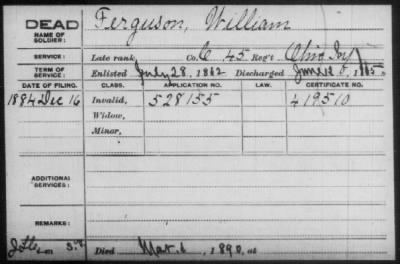 DEAD
NAME OF SOLDIER: Ferguson, William
SERVICE: Late rank, Co. C 45 Reg't Ohio Inf
TERM OF SERVICE: Enlisted July 28, 1862 Discharged June 1865
DATE OF FILING. CLASS. APPLICATION NO. LAW. CERTIFICATE NO.
1884 Dec 16 Invalid, 528155 419510
Widow,
Minor,
ADDITIONAL SERVICES:
REMARKS:
Died Mar. 1, 1890, at